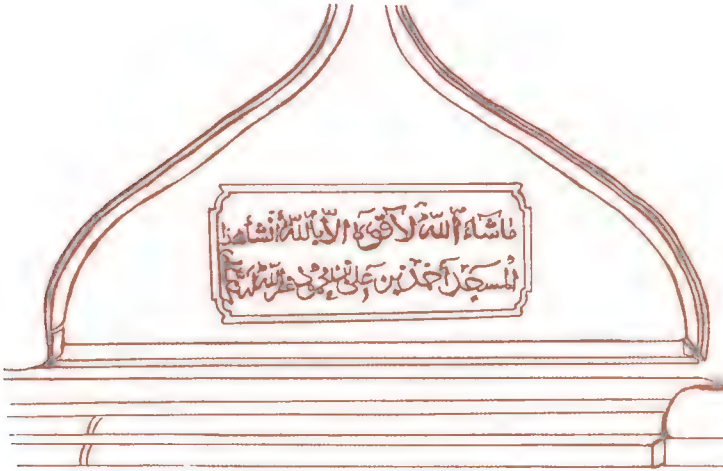 ماشاء الله لا قوة الا بالله أنشأ هذا
المسجد أحمد بن علي غفر الله لهم